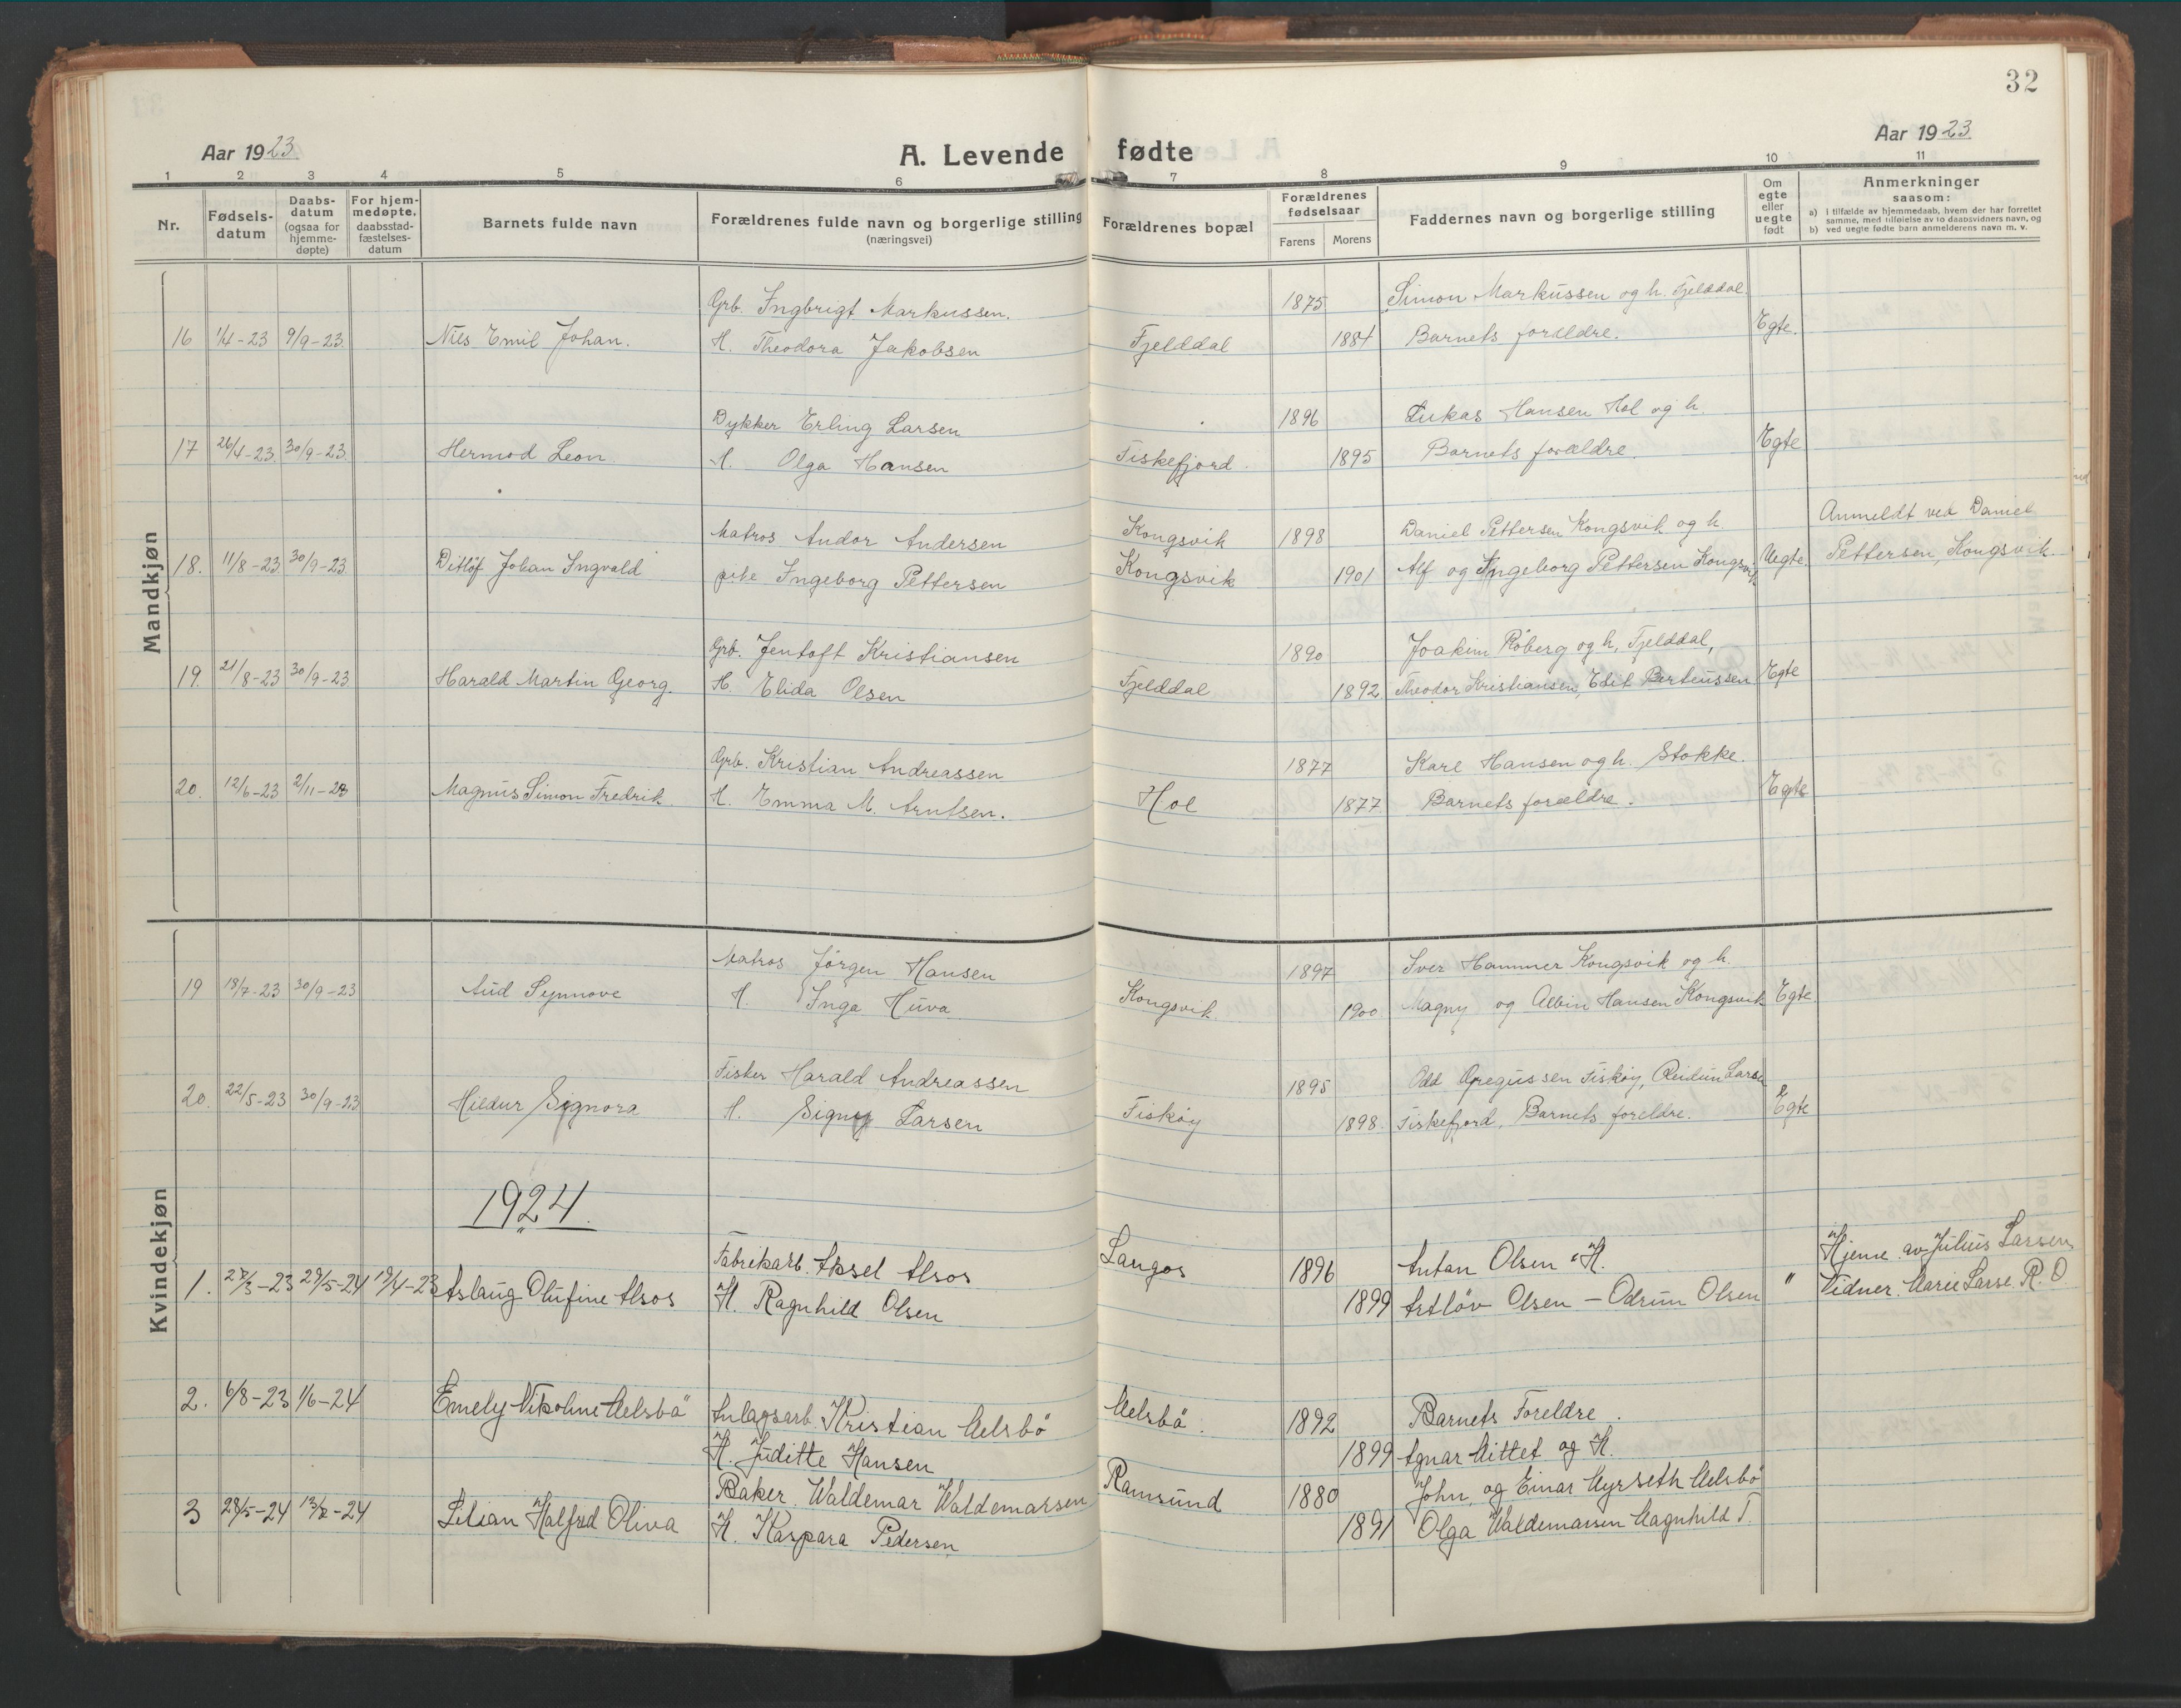 32
Aar 1923
A. Levende fødte
Aar 1923
1 2 3 4 5 6 7 8 9 10 11
Nr.
Fødsels-
datum
Daabs-
datum
(ogsaa for
hjemme-
døpte)
For hjem-
medøpte,
daabsstad-
fæstelses-
datum
Barnets fulde navn
Forældrenes fulde navn og borgerlige stilling
(næringsvei)
Forældrenes bopæl
Forældrenes
fødselsaar
Farens Morens
Faddernes navn og borgerlige stilling
Om
egte
eller
uegte
født
Anmerkninger
saasom:
a) I tilfælde av hjemmedaab, hvem der har forrettet
samme, med tilføielse av to daabsvidners navn, og
b) ved uegte fødte barn anmelderens navn m. v.
Mandkjøn
Grb. Ingbrigt Markussen. 1875 Simon Markussen og h. Fjelddal.
16 1/4-23 9/9-23. Nils Emil Johan. H. Theodora Jakobsen Fjelddal 1884 Barnets forældre. Egte.
Dykker Erling Larsen 1896 Lukas Hansen Hol og h.
17 26/4-23. 30/9-23. Hermod Leon. H. Olga Hansen Fiskefjord. 1895 Barnets forældre. Egte
Matros Andor Andersen Kongsvik 1898 Daniel Pettersen Kongsvik og h. Anmeldt ved Daniel
18. 11/8-23. 30/9-23. Ditlöf Johan Ingvald pike Ingeborg Pettersen Kongsvik 1901 Alf og Ingeborg Pettersen Kongsvik Uegte. Pettersen, Kongsvik.
Grb. Jentoft Kristiansen 1890 Joakim Röberg og h, Fjelddal,
19. 21/8-23 30/9-23. Harald Martin Georg. H. Elida Olsen Fjelddal 1892. Theodor Kristiansen, Edit Berteussen Egte
Grb. Kristian Andreassen 1877 Karl Hansen og h. Stokke.
20. 12/6-23 2/11-23 Magnus Simon Fredrik. H. Emma M. Arntsen. Hol 1877. Barnets forældre. Egte
Kvindekjøn
Matros Jörgen Hansen 1897 Iver Hammer Kongsvik og h.
19 18/7-23 30/9-23 Aud Synnove H. Inga Huva Kongsvik. 1900. Magny og Albin Hansen Kongsvik Egte.
Fisker Harald Andreassen 1895 Odd Gregussen Fiskøy, Reidun Larsen
20. 22/5-23 30/9-23 Hildur Signora H. Signy Larsen Fiskøy 1898. Fiskefjord, Barnets foreldre. Egte
1924.
Fabrikarb. Aksel Alsos Langos 1896 Antan Olsen "H. Hjeme. av Julius Larsen
1. 29/5-24 19/4-23 Aslaug Olufine Alsos H. Ragnhild Olsen 1899 Olsen - Odrun Olsen " Vidner. Marie Larse. R. O
2. 6/8-23 1/6-24 Emely Nikoline Melsbö Anlagsarb. Kristian Melsbö Melsbö. 1892 Barnets Foreldre.
H. Juditte Hansen 1899 Agnar Mittet og H.
Baker. Waldemar Waldemarsen Ramsund 1880 John, og Einar Myrseth Melsbö
3 28/5-24 Lilian Halfrid Oliva H. Kaspara Pedersen 1891 Olga Waldemarsen Magnhild T.